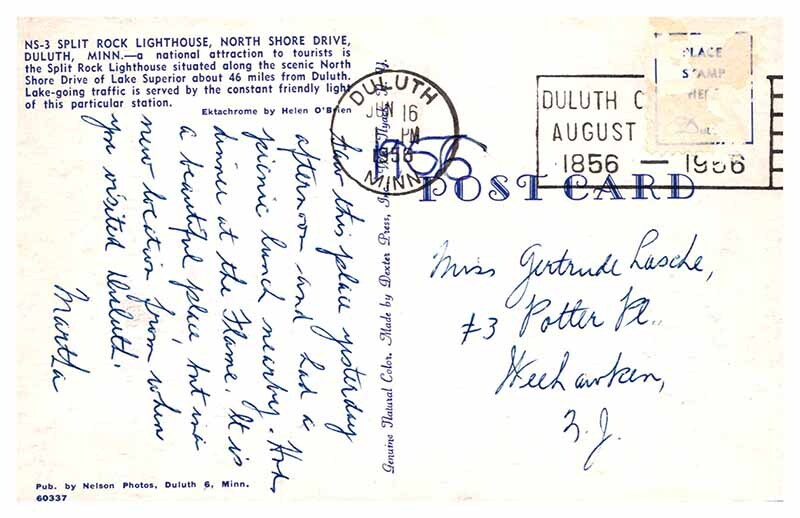 NS-3 SPLIT ROCK LIGHTHOUSE, NORTH SHORE DRIVE,
DULUTH, MINN.—a national attraction to tourists is
the Split Rock Lighthouse situated along the scenic North
Shore Drive of Lake Superior about 46 miles from Duluth.
Lake-going traffic is served by the constant friendly light
of this particular station.
Ektachrome by Helen O'Brien
Saw this place yesterday
afternoon and had a
picnic lunch nearby. Had
dinner at the Flame. It is
a beautiful place but in a
new location from when
you visited Duluth.
Martha
Pub. by Nelson Photos, Duluth 6, Minn.
60337
Genuine Natural Color. Made by Dexter Press, Inc.
DULUTH
JUN 16
PM
1956
MINN
1956
DULUTH C
AUGUST
1856 — 1956
PLACE
STAMP
HERE
POST CARD
Miss Gertrude Lasche,
#3 Potter Pl.,
Weehawken,
N.J.